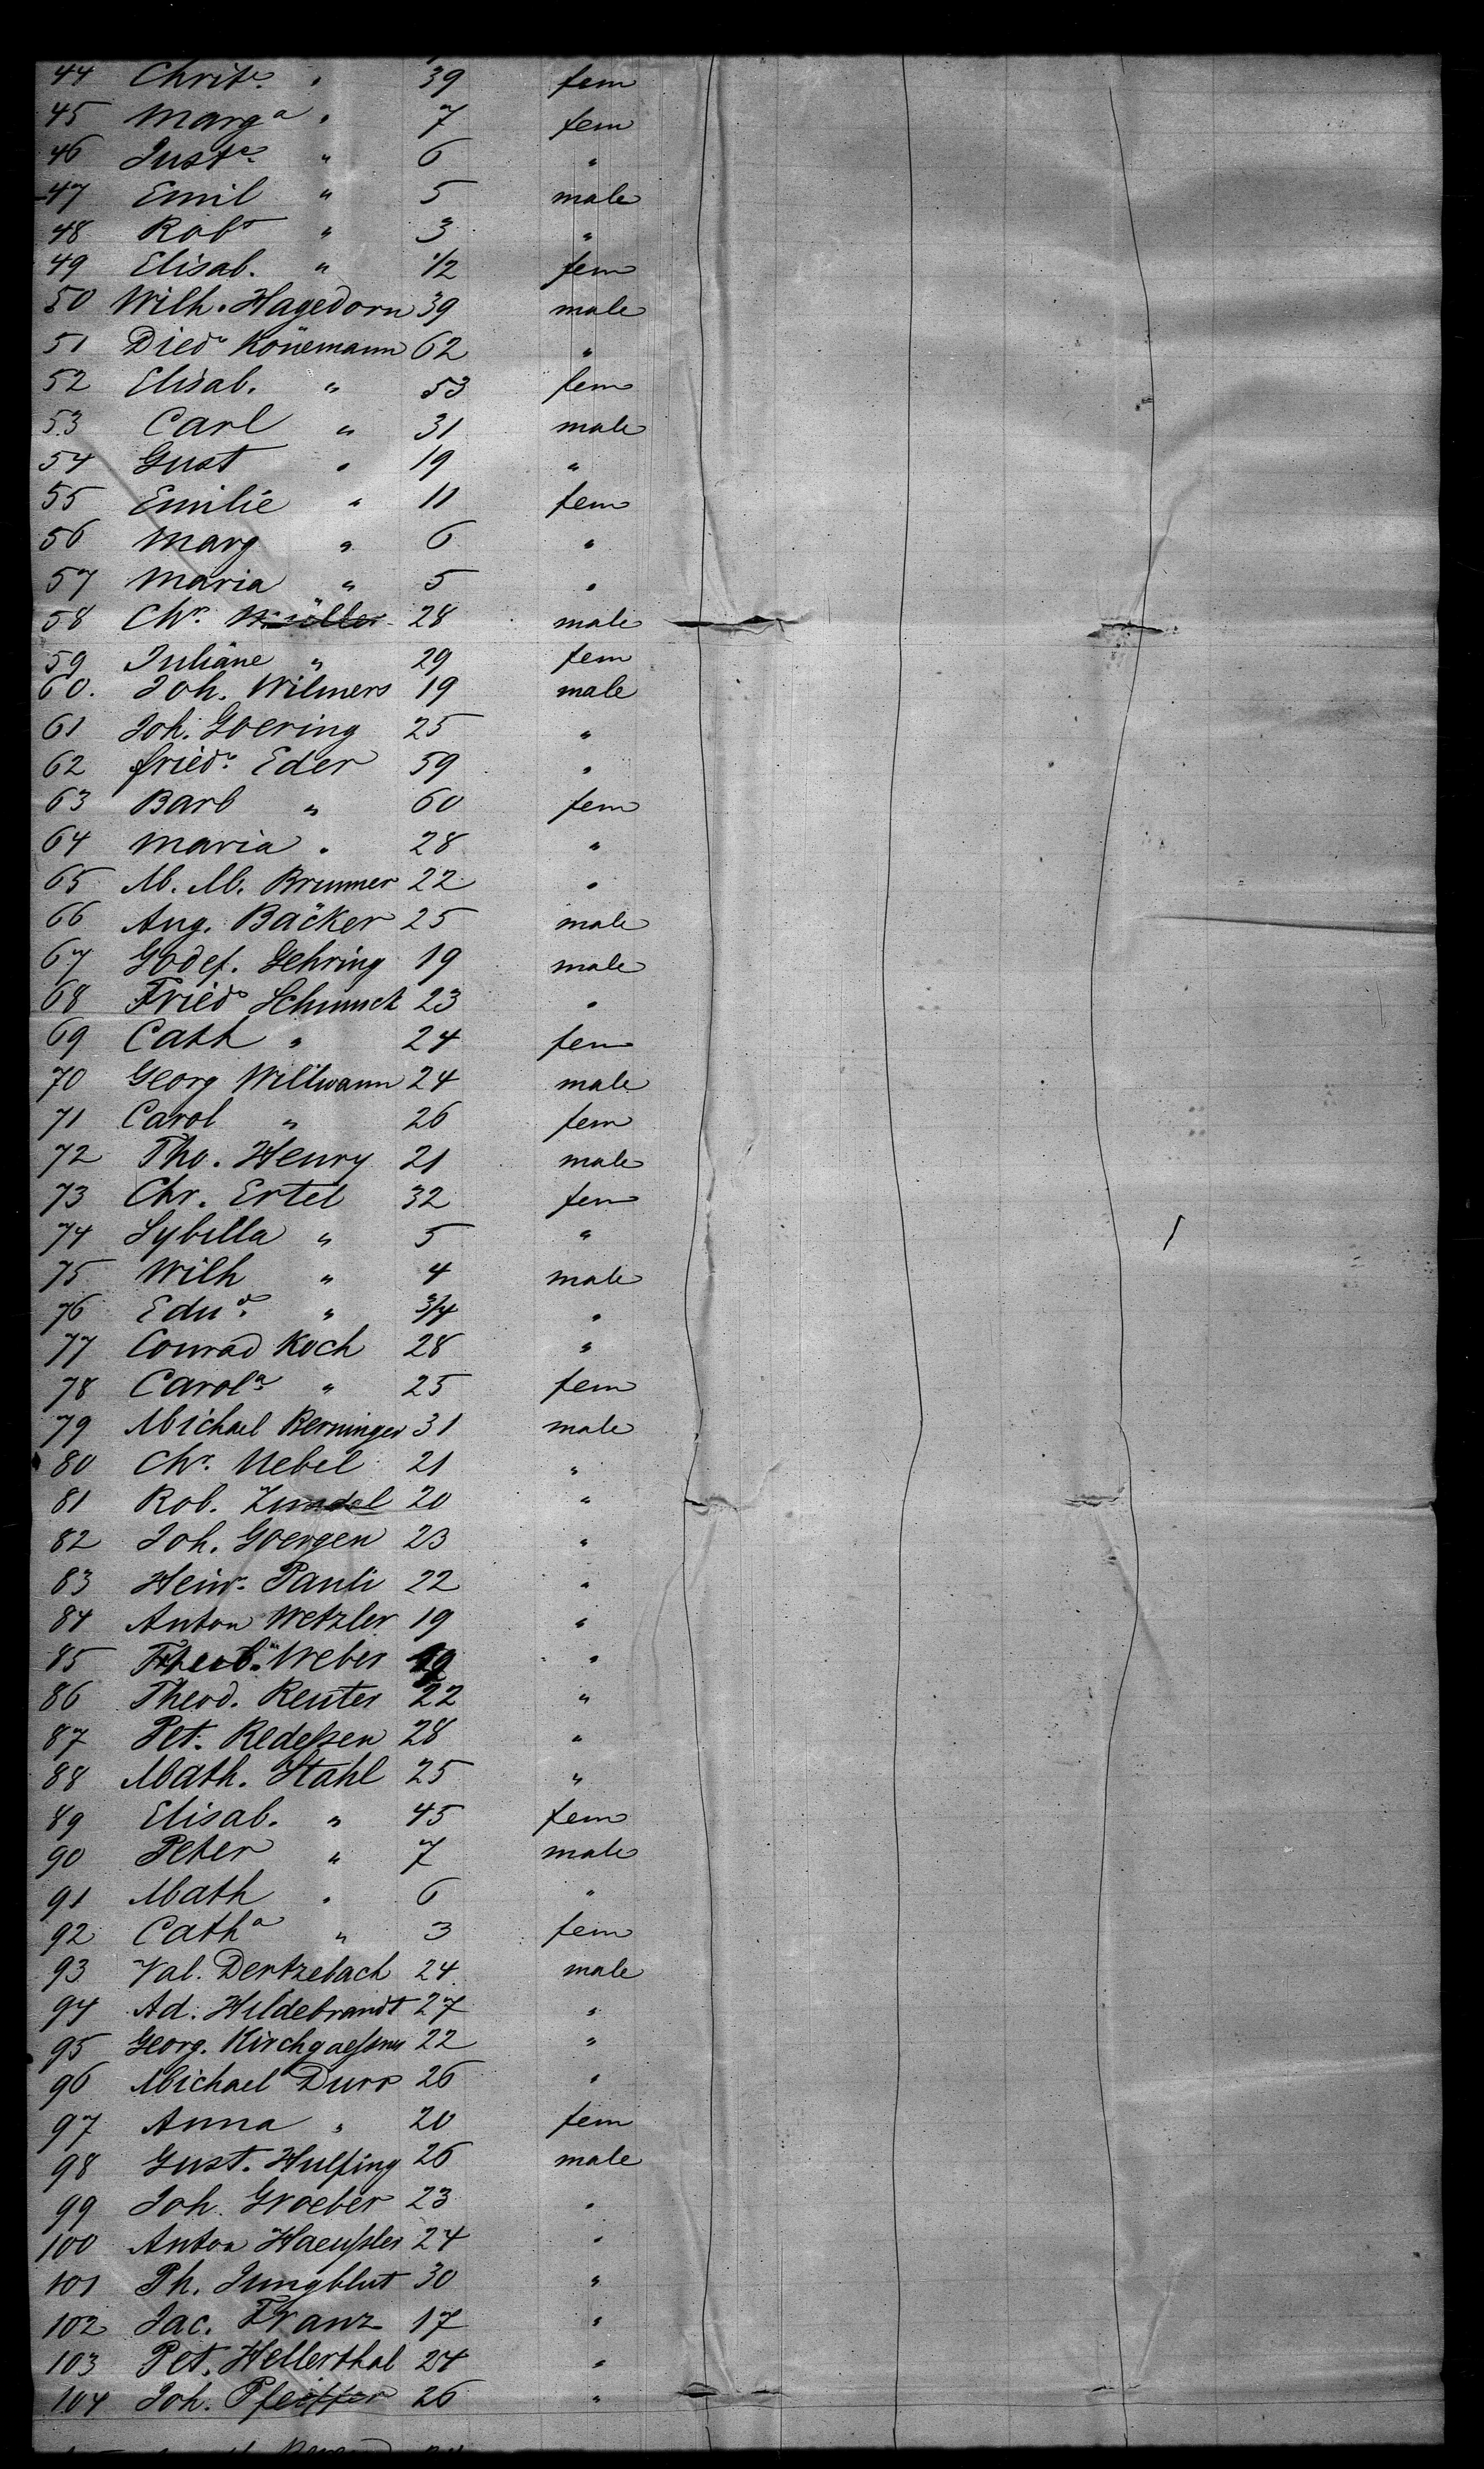 44 Christe. " 39 fem
45 Marga " 7 fem
46 Juste. " 6 "
47 Emil " 5 male
48 Robt " 3 "
49 Elisab. " 1/2 fem
50 Wilh. Hagedorn 39 male
51 Diedr Könemann 62 "
52 Elisab. " 53 fem
53 Carl " 31 male
54 Gust " 19 "
55 Emilie " 11 fem
56 Marg " 6 "
57 Maria " 5 "
58 Chr. Müller 28 male
59 Juliane " 29 fem
60. Joh. Wilmers 19 male
61 Joh. Goering 25 "
62 Friedr. Eder 59 "
63 Barb " 60 fem
64 Maria " 28 "
65 M. M. Brunner 22 "
66 Aug. Bäcker 25 male
67 Godef. Gehring 19 male
68 Friedr Schmuck 23 "
69 Cath " 24 fem
70 Georg Willwann 24 male
71 Carol " 26 fem
72 Tho. Henry 21 male
73 Chr. Ertel 32 fem
74 Sybilla " 5 "
75 Wilh " 4 male
76 Edud. " 3/4 "
77 Conrad Koch 28 "
78 Carola. " 25 fem
79 Michael Berninger 31 male
80 Chr. Uebel 21 "
81 Rob. 20 "
82 Joh. Goergen 23 "
83 Heinr. Pauli 22 "
84 Anton Wetzler 19 "
85 Weber "
86 Theod. Reuter 22 "
87 Pet. Redeßen 28 "
88 Math. Stahl 25 "
89 Elisab. " 45 fem
90 Peter " 7 male
91 Math " 6 "
92 Catha " 3 fem
93 Val. Dertzebach 24 male
94 Ad. Hildebrandt 27 "
95 Georg. Kirchgaeßner 22 "
96 Michael Durr 26 "
97 Anna " 20 fem
98 Gust. Hulsing 26 male
99 Joh. Groeber 23 "
100 Anton Haeußler 24 "
101 Ph. Jungblut 30 "
102 Jac. Franz 17 "
103 Pet. Hellerthal 24 "
104 Joh. Pfeiffer 26 "